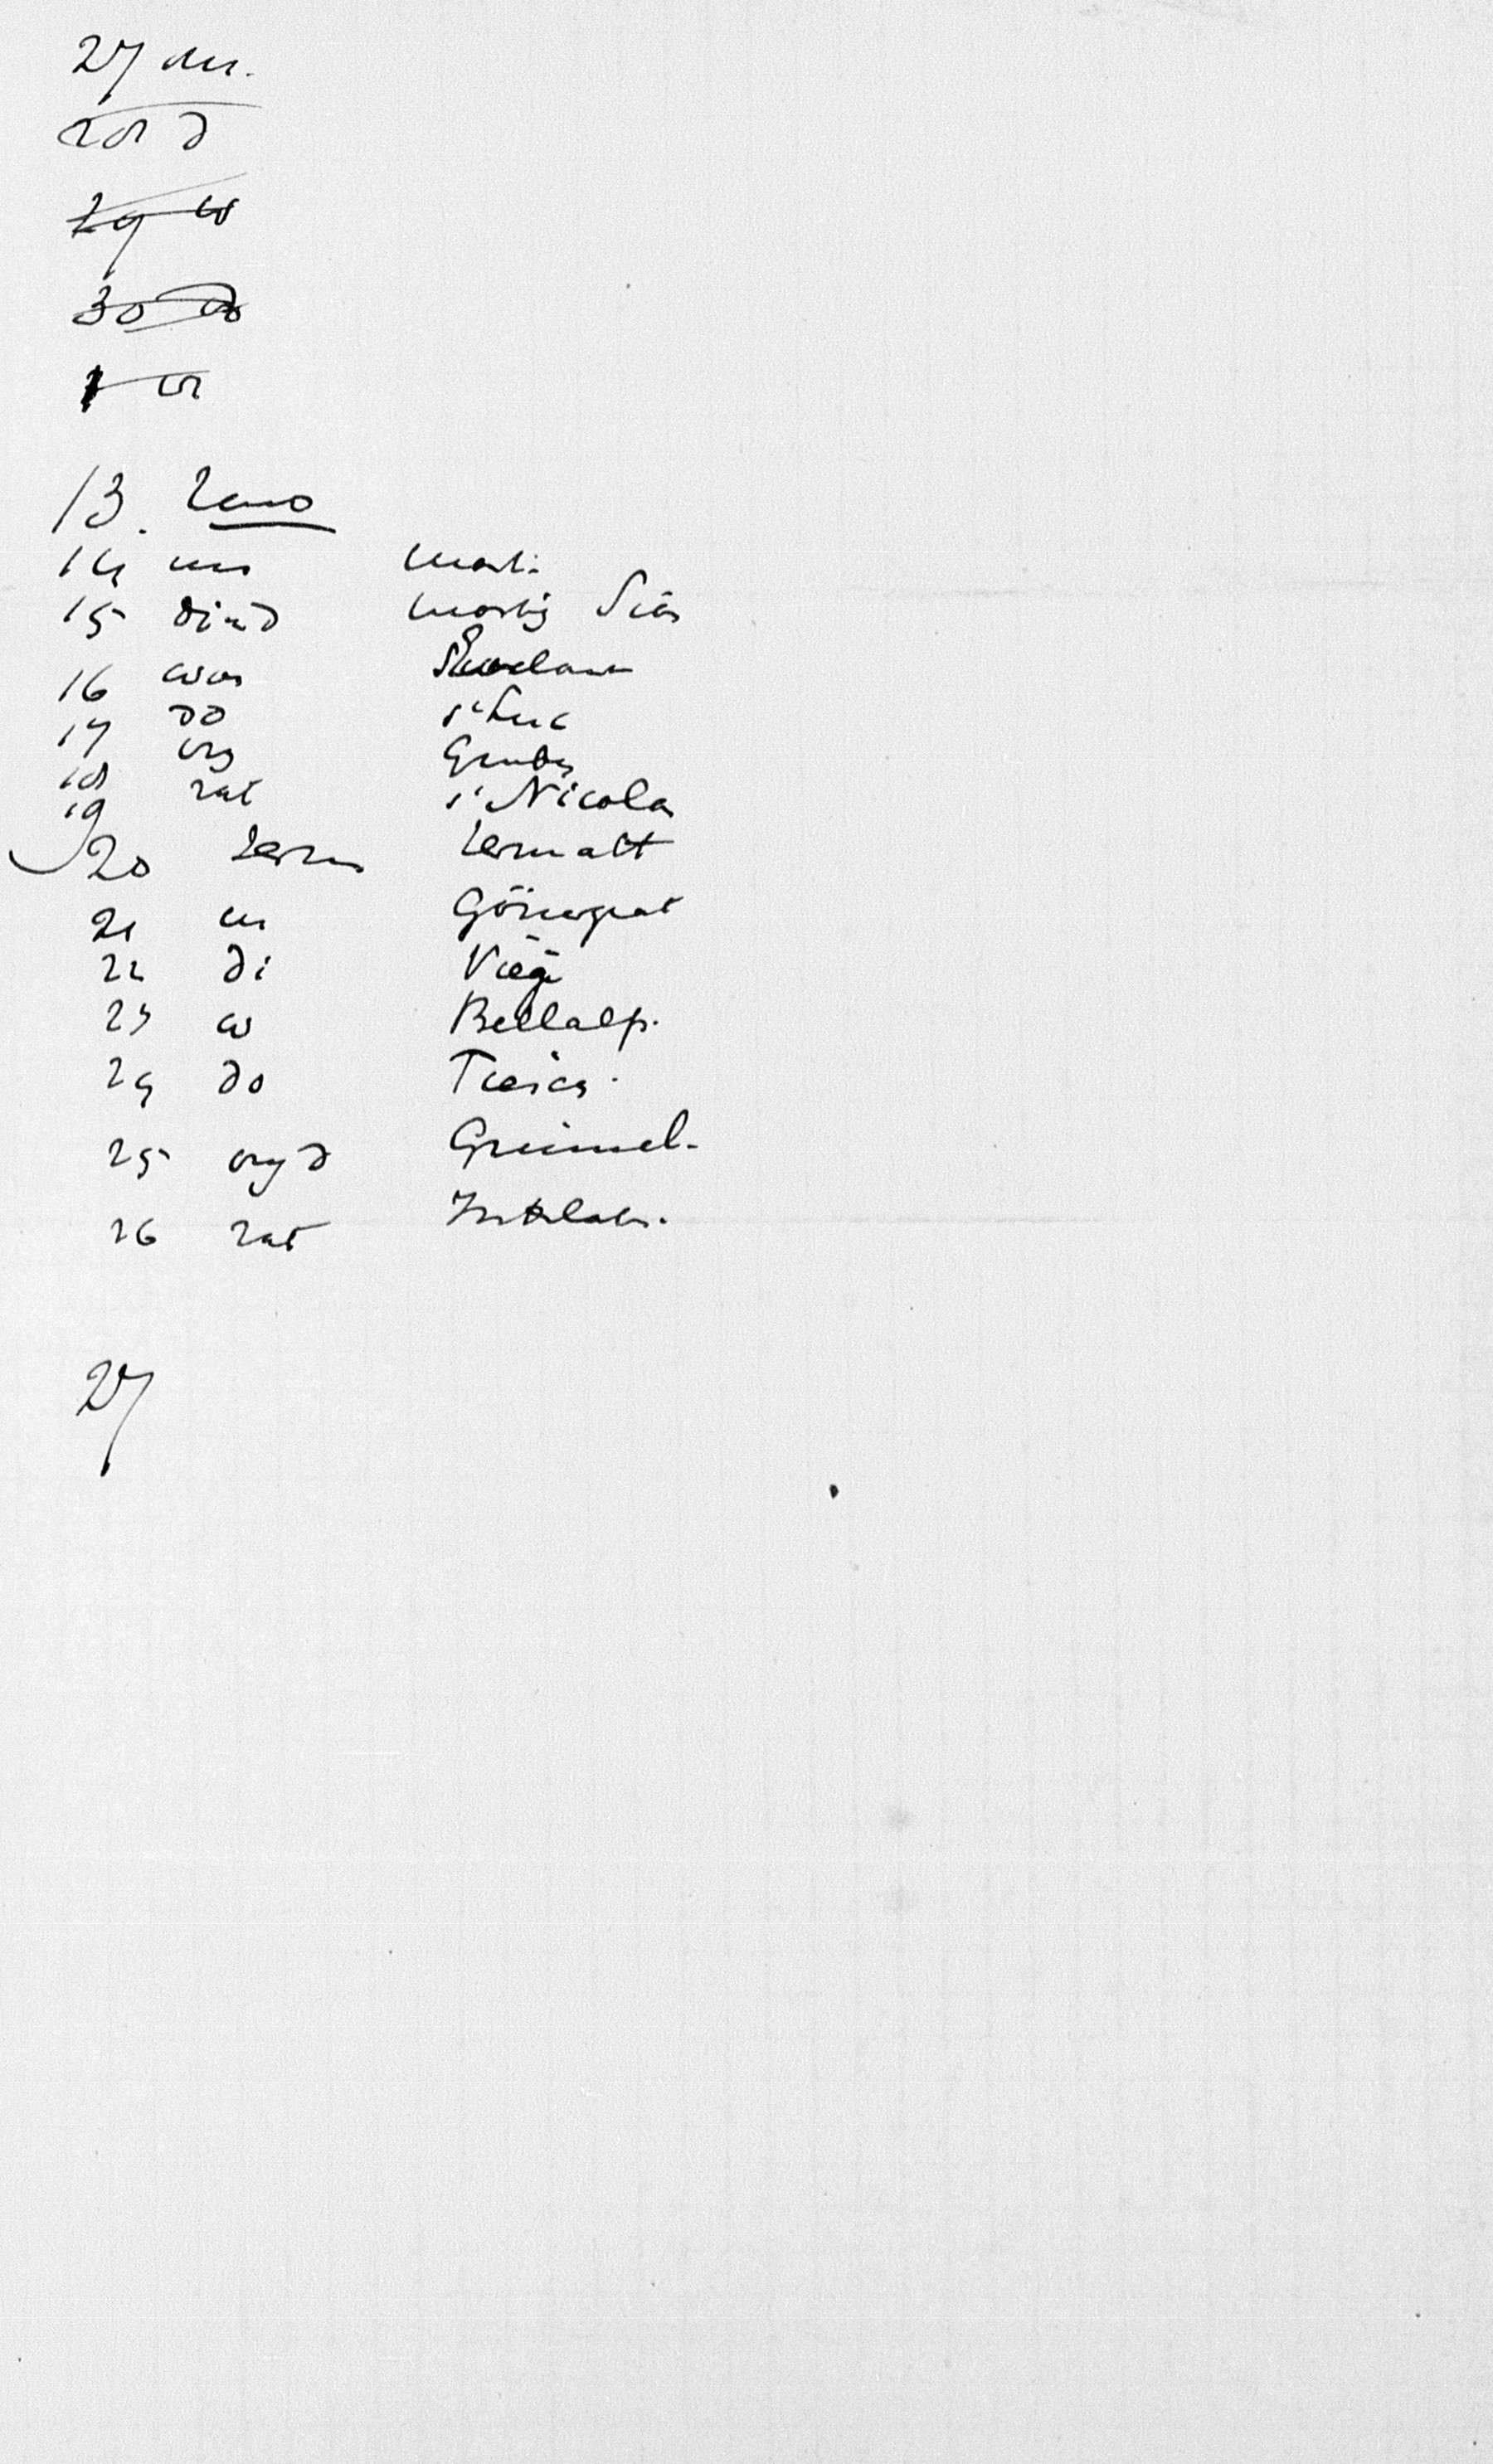 27 m.
28 d
29 w
30 do
1 vr
13. Zo
14 ma Marti
15 dinsd Martig Siër
16 woe
17 do St Luc
18 vry Gruben
19 zat St Nicola
20 Zermatt
21 m Görnergrat
22 di Viège
23 w Bellalp.
24 do Fiesch.
25 vryd Grimsel.
26 zat Interlak.
27